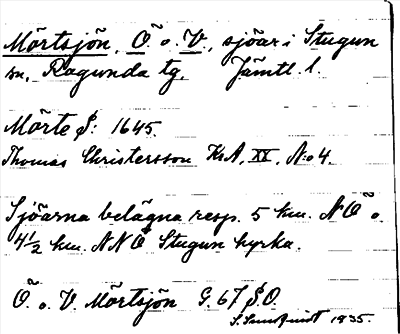 Mörtsjön, Ö. o. V., sjöar i Stugun
sn, Ragunda tg. Jämtl. l.
Mörte S: 1645.
Thomas Christersson KrA, XX, N:o 4.
Sjöarna belägna resp. 5 km. NÖ o.
4½ km. NNÖ Stugun kyrka.
Ö. o. V. Mörtsjön G. 67 S.O.
1935.